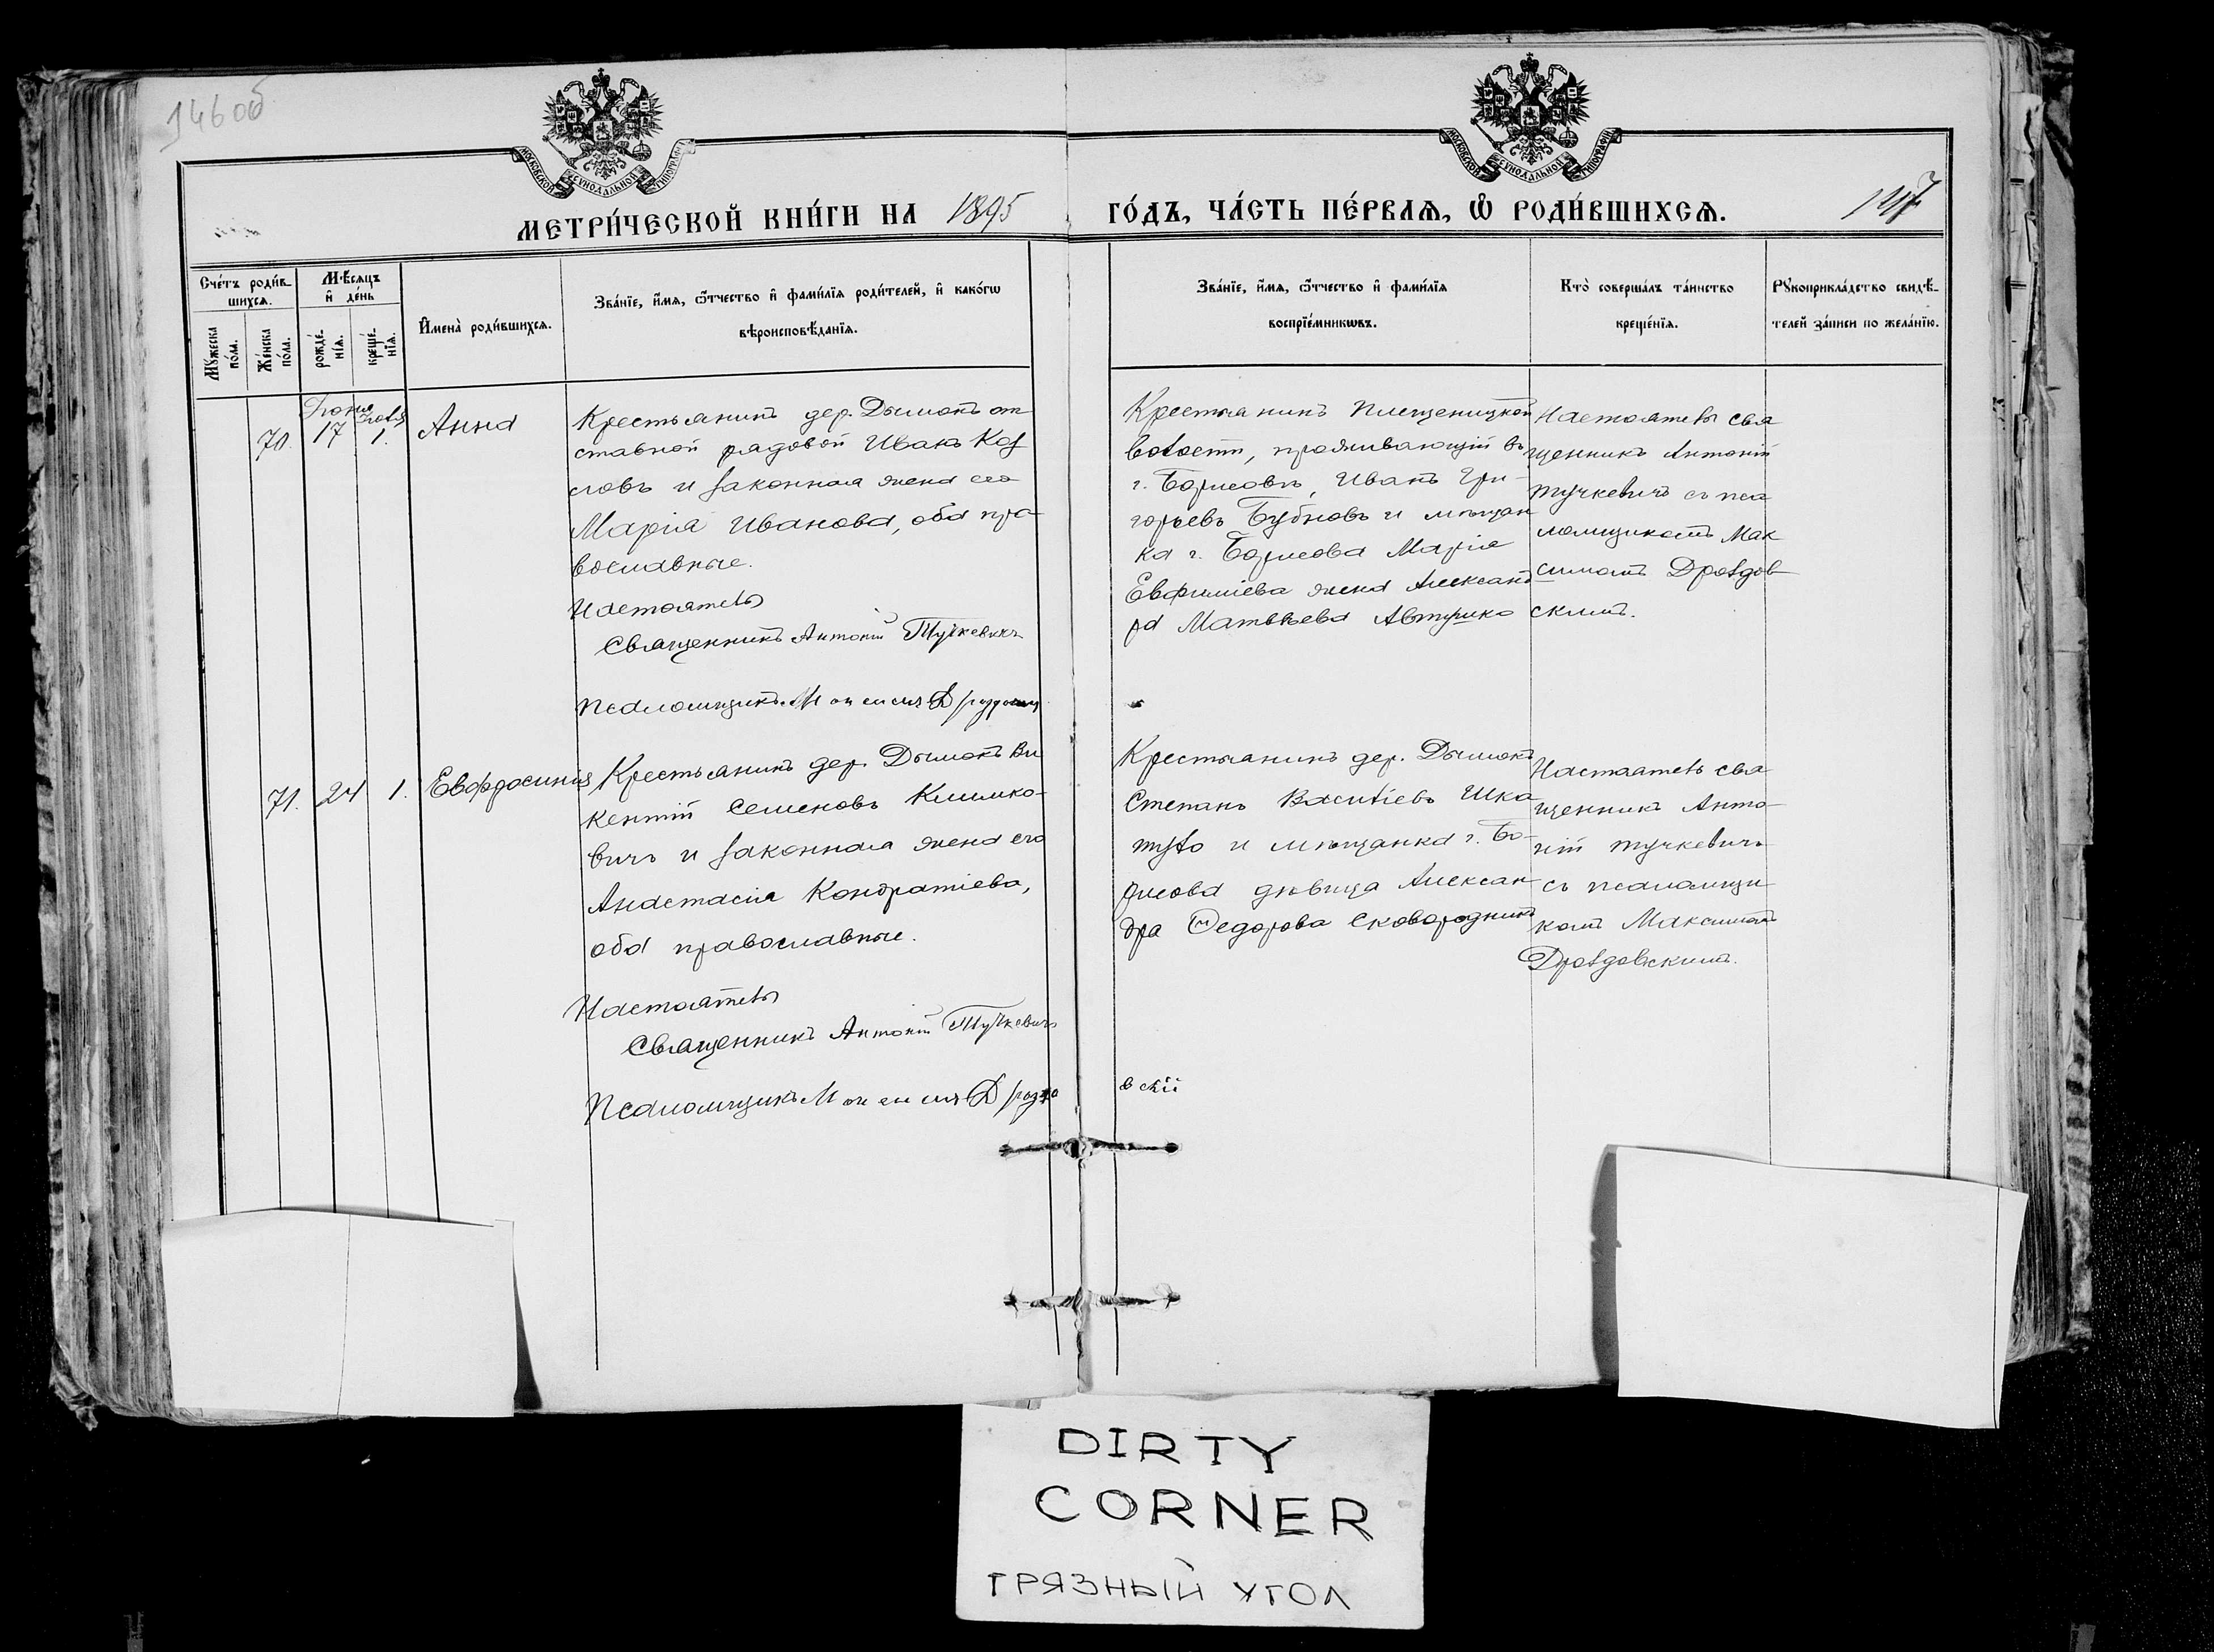 146об
МОСКОВСКОЙ СѴНОДАЛЬНОЙ ТИПОГРАФІИ
МОСКОВСКОЙ СѴНОДАЛЬНОЙ ТИПОГРАФІИ
МЕТРИ́ЧЕСКОЙ КНИ́ГИ НА 1895
ГО́ДЪ, ЧА́СТЬ ПЕ́РВАѦ, Ѽ РОДИ́ВШИХСѦ.
147
Сче́тъ роди́в-
шихсѧ.
Мꙋ́жеска
по́ла.
Же́нска
по́ла.
Мѣ́сѧцъ
и҆ де́нь
рожде́-
нїѧ.
креще́-
нїѧ.
И҆мена̀ роди́вшихсѧ.
Зва́нїе, и҆́мѧ, ѻ҆́тчество и҆ фами́лїѧ роди́телей, и҆ како́гѡ
вѣроисповѣ́данїѧ.
Зва́нїе, и҆́мѧ, ѻ҆́тчество и҆ фами́лїѧ
воспрїе́мникѡвъ.
Кто̀ соверша́лъ та́инство
креще́нїѧ.
Рꙋкоприкла́дство свидѣ́-
телей за́писи по жела́нїю.
70.
Іюня
17
Іюля
1.
Анна
Крестьянинъ дер. Дымокъ от
ставной рядовой Иванъ Коз
ловъ и законная жена его
Марія Иванова, оба пра-
вославные.
Настоятель
Священникъ Антоній Тучкевичъ
Псаломщикъ
Крестьянинъ Плещеницкой
волости, проживающій въ
г. Борисовѣ, Иванъ Гри-
горьевъ Бубновъ и мѣщан
ка г. Борисова Марія
Евфиміева жена Александ
ра Матвѣева
Настоятель свя
щенникъ Антоній
Тучкевичъ съ пса
ломщикомъ Мак
симомъ Дроздов-
скимъ.
71.
24
1.
Евфросинія
Крестьянинъ дер. Дымокъ Ви
кентій Семеновъ Климко-
вичъ и законная жена его
Анастасія Кондратіева,
оба православные.
Настоятель
Священникъ Антоній Тучкевичъ
Псаломщикъ Дроздо
вскій
Крестьянинъ дер. Дымокъ
Степанъ Василіевъ Шка
туло и мѣщанка г. Бо-
рисова дѣвица Алексан
дра Ѳедорова Сковородникъ
Настоятель свя
щенникъ Анто-
ній Тучкевичъ
съ псаломщи
комъ Максимомъ
Дроздовскимъ.
DIRTY
CORNER
ГРЯЗНЫЙ УГОЛ